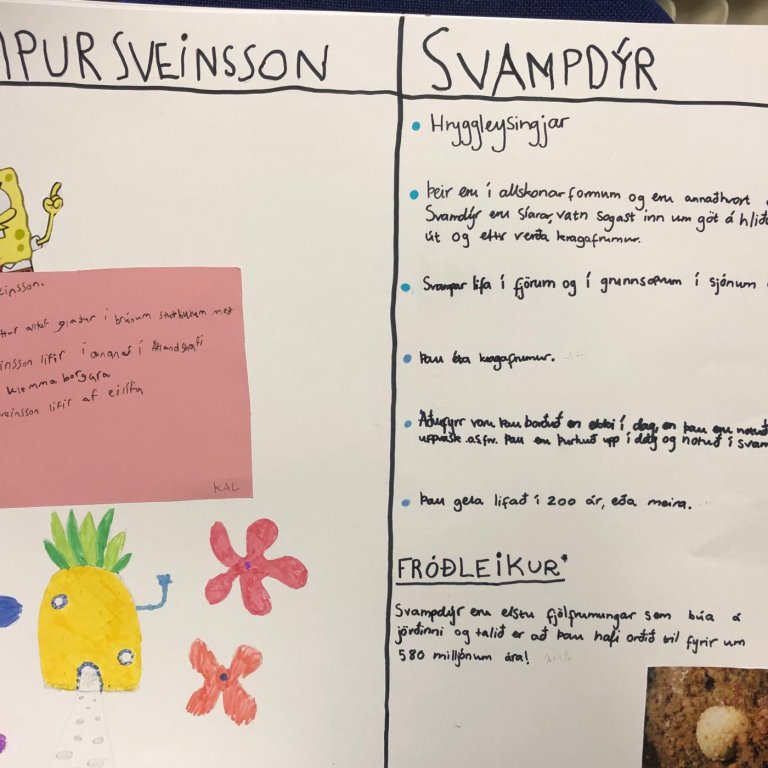 MPUR SVEINSSON
einsson.
ttur alltaf glaður í brúnum stuttbuxum með
insson lifir í ananas í Atlandshafi
klemma borgara
veinsson lifir af eilífu
KAL
SVAMPDÝR
Hryggleysingjar
Þeir eru í allskonar formum og eru annaðhvort
Svamdýr eru síarar, vatn sogast inn um göt á hlið
út og eftir verða kragafrumur.
Svampar lifa í fjörum og í grunnsœvum í sjónum
Þau éta kragafrumur.
Áðufyrr voru þau borðuð en ekki í dag, en þau eru notuð
uppvask o.s.fr. Þau eru þurkuð upp í dag og notuð í svam
Þau geta lifað í 200 ár, eða meira.
FRÓÐLEIKUR*
Svampdýr eru elstu fjölfrumungar sem búa á
jörðinni og talið er að þau hafi orðið til fyrir um
580 milljónum ára!